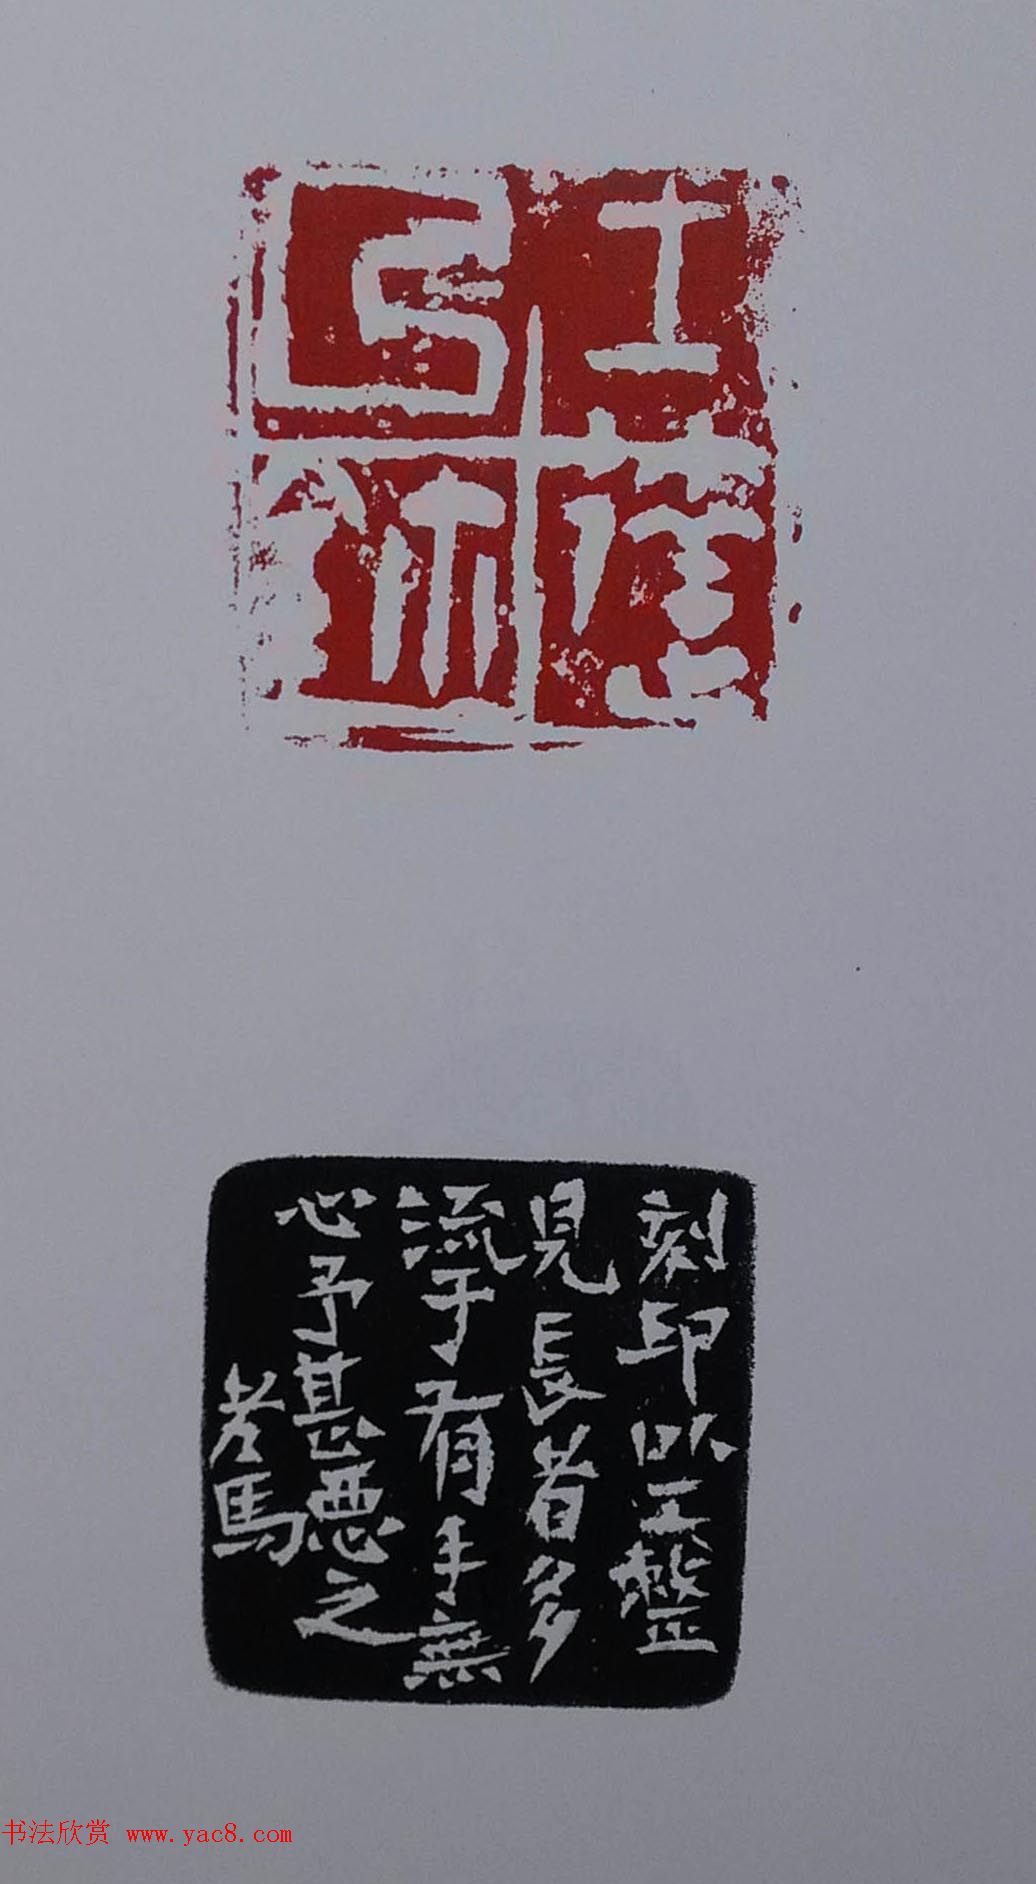 刻印以工整
見長者多
流于有手無
心予甚惡之
老馬
书法欣赏 www.yac8.com